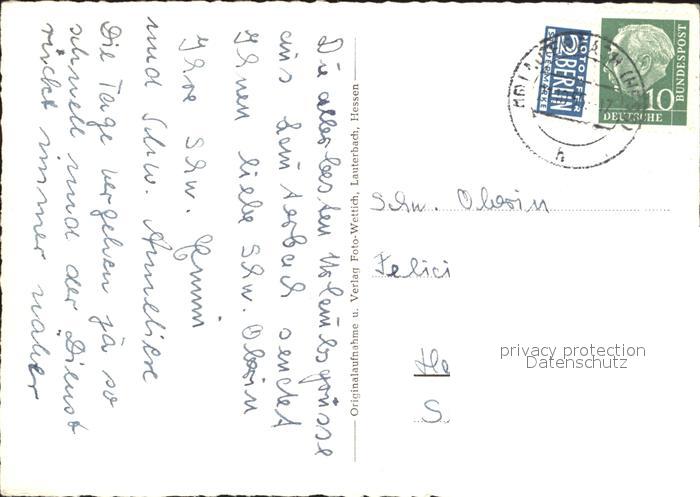 Die allerbesten Urlaubsgrüsse
aus Lauterbach sendet
Ihnen liebe Schw. Oberin
Ihre Schw. Erwin
und Schw. Anneliese
Die Tage vergehen ja so
schnell und der Dienst
rückt immer näher
Originalaufnahme u. Verlag Foto-Wettich, Lauterbach, Hessen
NOTOPFER
2 BERLIN
STEUERMARKE
10
DEUTSCHE
BUNDESPOST
h
Schw. Oberin
Felici
He
S
privacy protection
Datenschutz